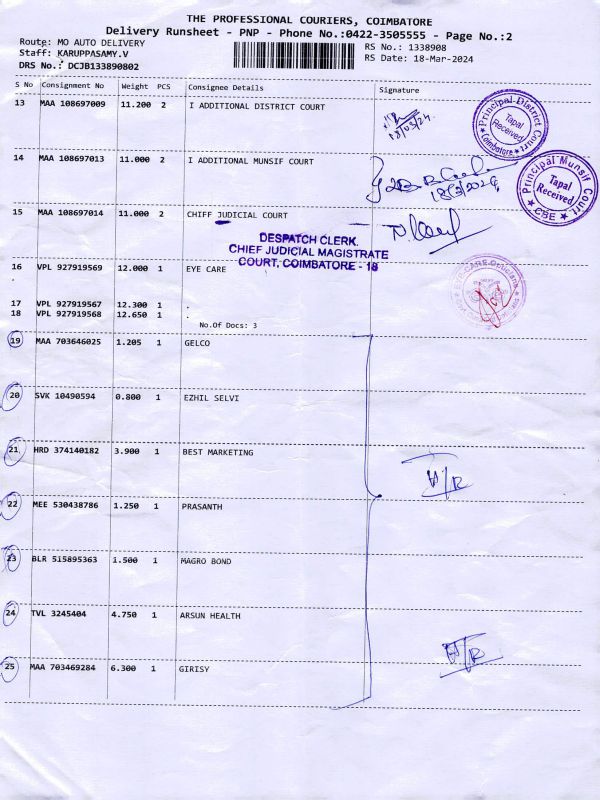 THE PROFESSIONAL COURIERS, COIMBATORE
Delivery Runsheet - PNP - Phone No.:0422-3505555 - Page No.:2
Route: MO AUTO DELIVERY
RS No.: 1338908
Staff: KARUPPASAMY.V
RS Date: 18-Mar-2024
DRS No.: DCJB133890802
S No Consignment No Weight PCS Consignee Details Signature
13 MAA 108697009 11.200 2 I ADDITIONAL DISTRICT COURT
18/03/24
Principal District Court
Tapal Received
Coimbatore
14 MAA 108697013 11.000 2 I ADDITIONAL MUNSIF COURT
18/3/2024
Principal Munsif Court
Tapal Received
CBE
15 MAA 108697014 11.000 2 CHIFF JUDICIAL COURT
DESPATCH CLERK.
CHIEF JUDICIAL MAGISTRATE
COURT, COIMBATORE - 18
16 VPL 927919569 12.000 1 EYE CARE
EYE CARE Opticians
17 VPL 927919567 12.300 1 .
18 VPL 927919568 12.650 1 .
No.Of Docs: 3
19 MAA 703646025 1.205 1 GELCO
20 SVK 10490594 0.800 1 EZHIL SELVI
21 HRD 374140182 3.900 1 BEST MARKETING
22 MEE 530438786 1.250 1 PRASANTH
23 BLR 515895363 1.500 1 MAGRO BOND
24 TVL 3245404 4.750 1 ARSUN HEALTH
25 MAA 703469284 6.300 1 GIRISY